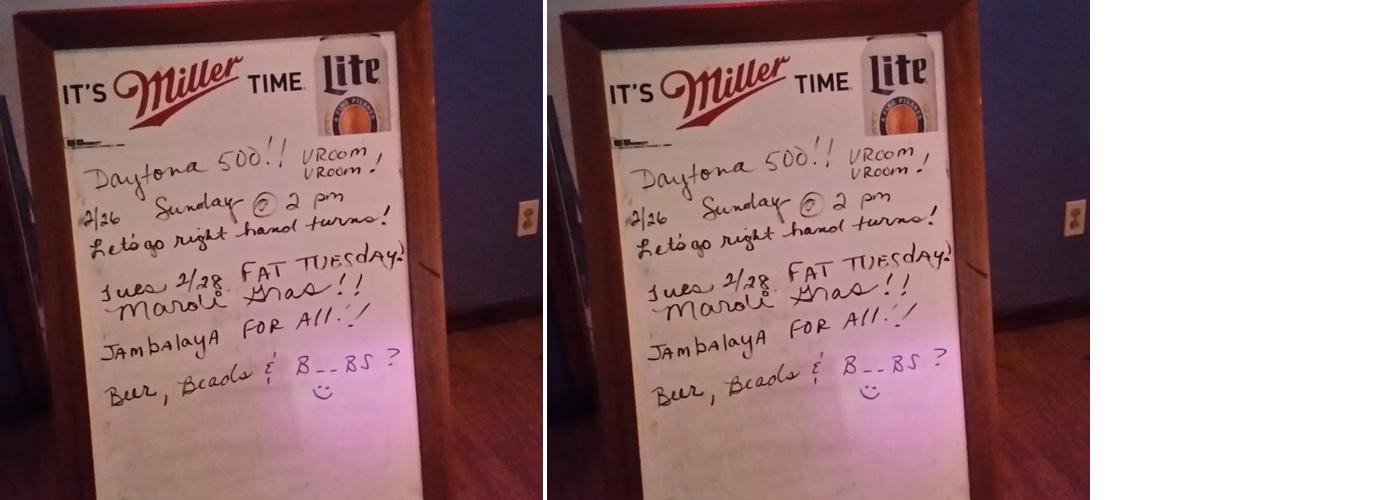 IT'S Miller TIME.
Lite
A FINE PILSNER
Daytona 500!! VROOM
VROOM!
2/26 Sunday @ 2 pm
Let's go right hand turns!
Tues 2/28. FAT TUESdAY!
Mardi Gras!!
JAmbAlAyA FOR All!!
Beer, Beads & B__BS ?
IT'S Miller TIME.
Lite
A FINE PILSNER
Daytona 500!! VROOM
VROOM!
2/26 Sunday @ 2 pm
Let's go right hand turns!
Tues 2/28. FAT TUESdAY!
Mardi Gras!!
JAmbAlAyA FOR All!!
Beer, Beads & B__BS ?